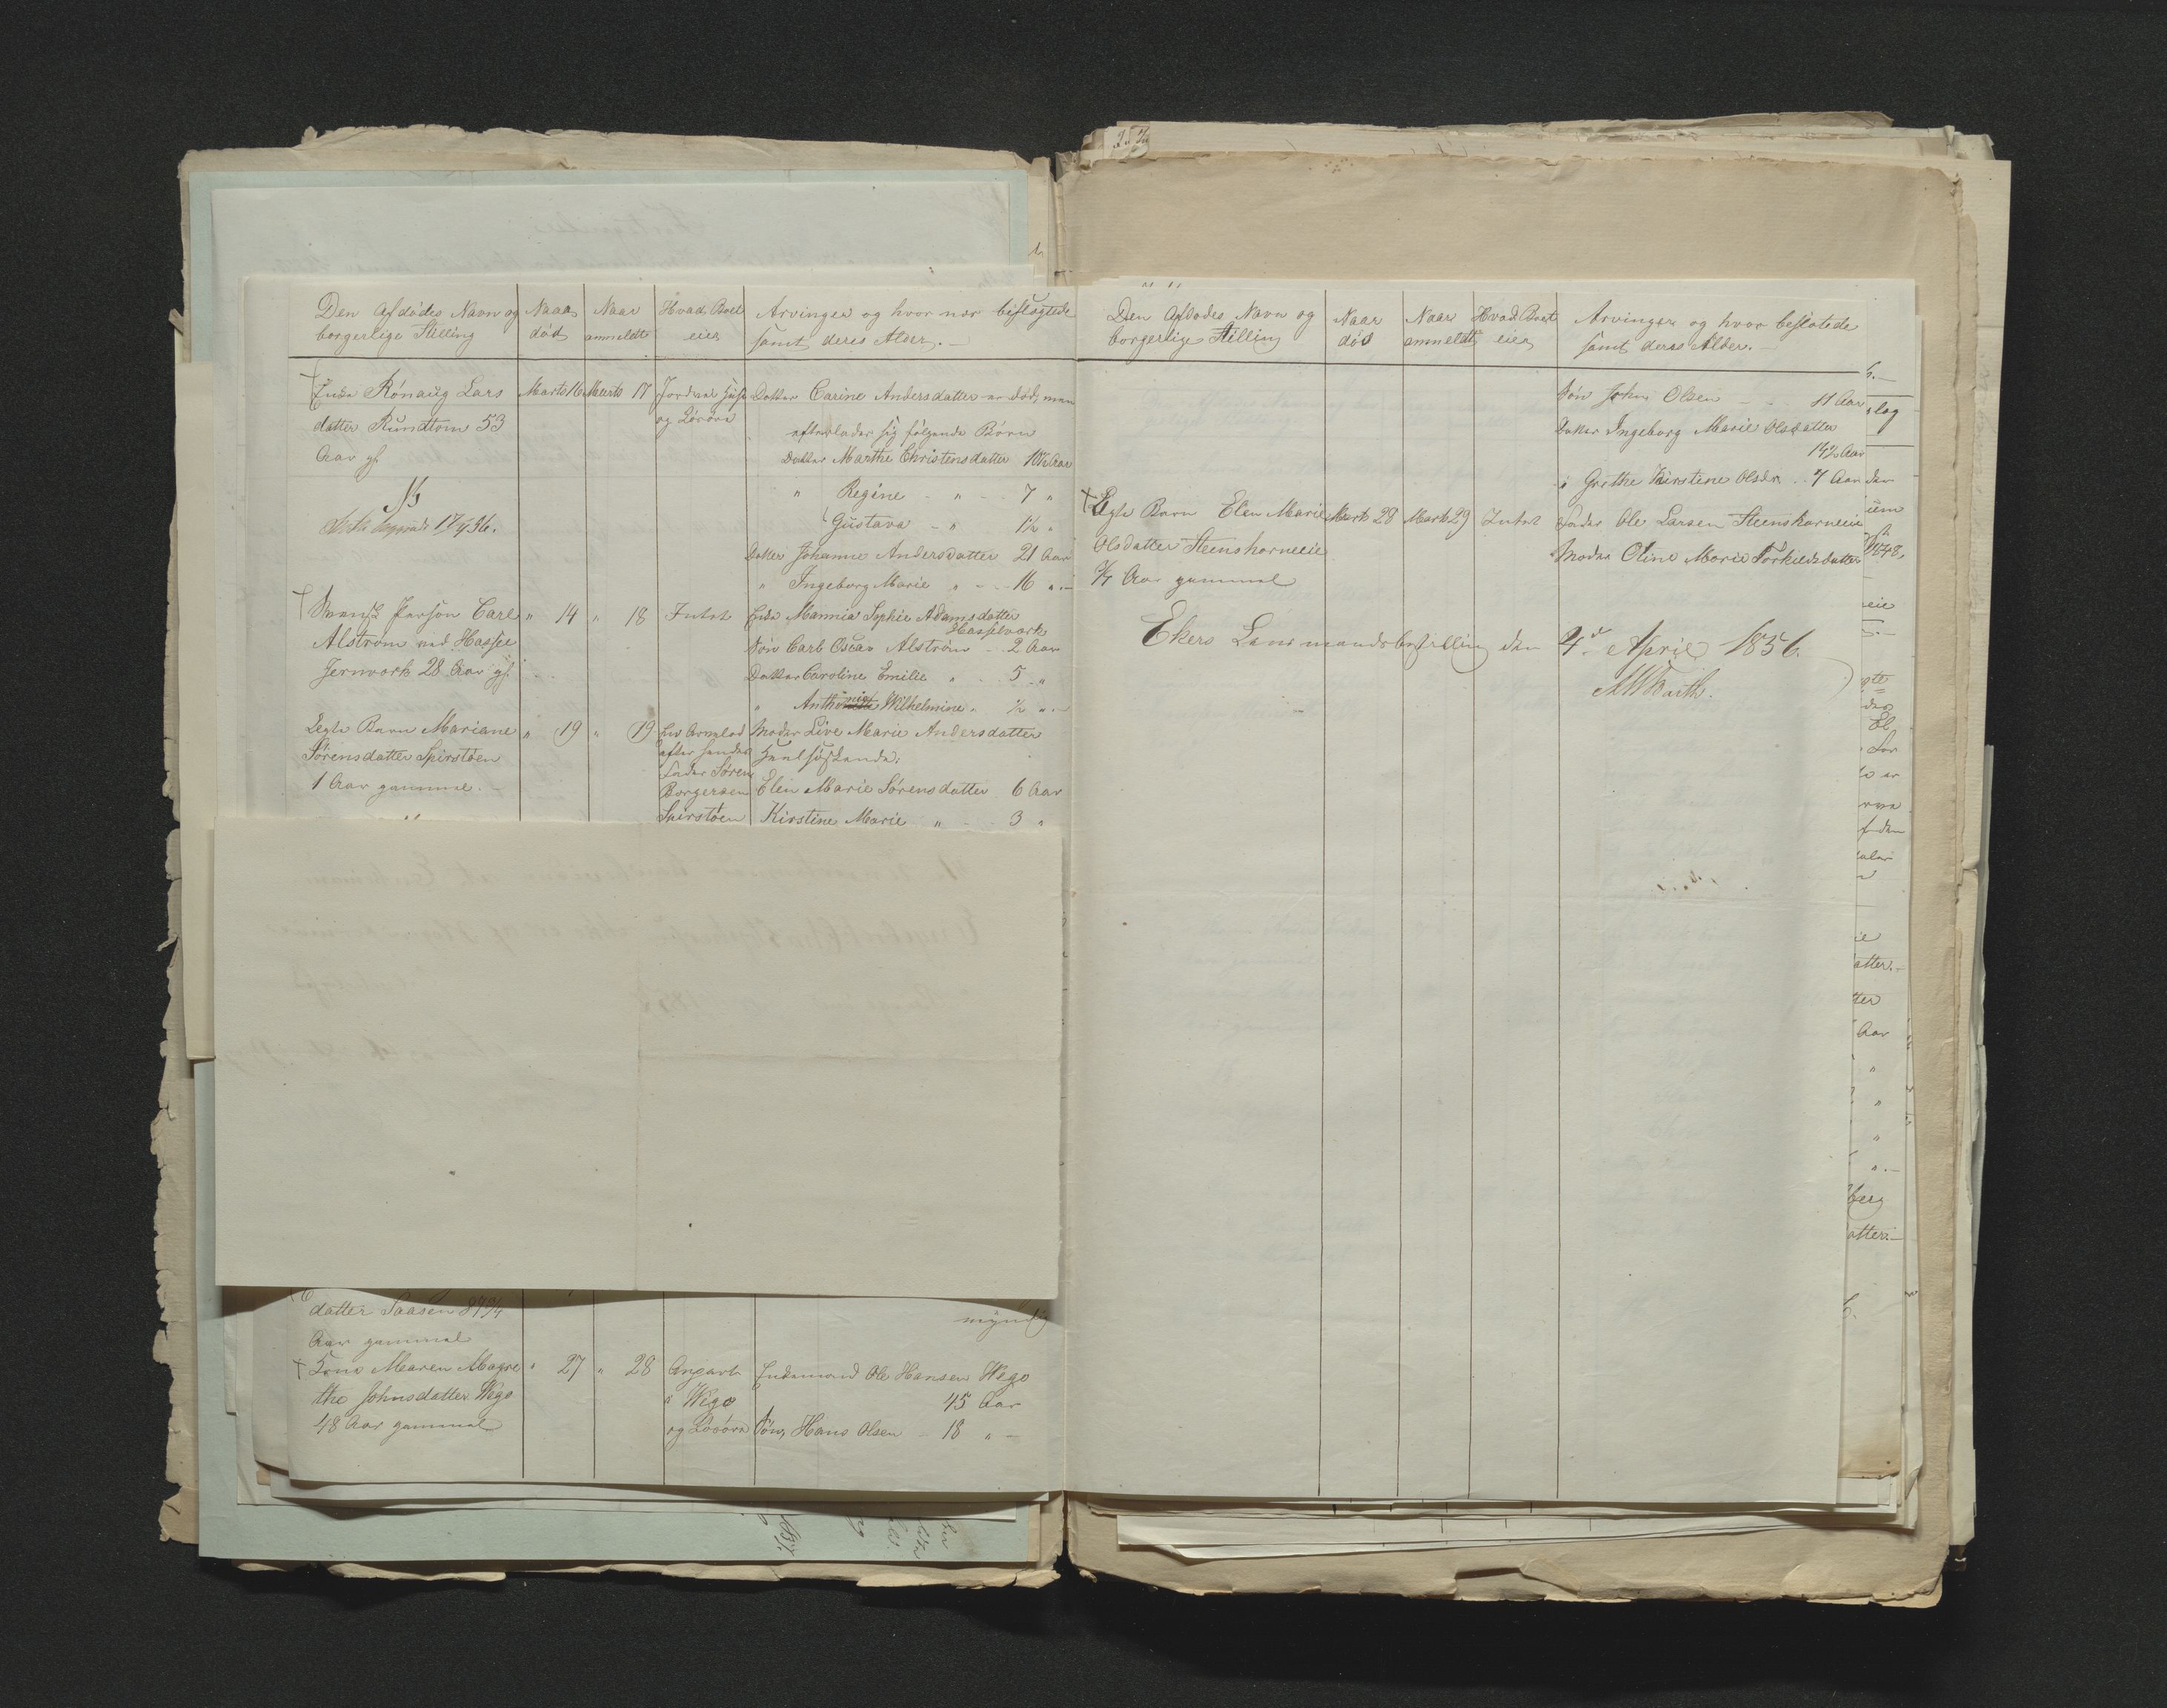 Den Afdödes Navn og borgerlige Stilling | Naar död | Naar anmeldt | Hvad Boet eier | Arvinger og hvor nær beslægtede samt deres Alder.
Enke Rönaug Lars | Marts 16 | Marts 17 | Jord | Datter Carine Andersdatter er död, men
datter Rundtom 53 | og Lösöre | efterlader sig fölgende Börn
Aar gl. | Datter Marthe Christensdatter 10½ Aar
" Regine - " - 7 "
17/4 56. | " Gustava - " 1½ "
Datter Johanne Andersdatter 21 Aar
" Ingeborg Marie " - 16 " -
Svensk Person Carl | " 14 | " 18 | Intet | Enke Mannia Sophie Adamsdatter
Hasselværk
Alström ved Hassel | Sön Carl Oscar Alström - 2 Aar
Jernværk 28 Aar gl. | Datter Caroline Emilie " - 5 "
" Anthonie Wilhelmine " ½ " -
Ægte Barn Mariane | " 19 | " 19 | En Arvelod | Moder Live Marie Andersdatter
Sörensdatter Spirstöen | efter sin | Heelsödskende:
1 Aar gammel. - | Fader Sören
Borgersen | Elen Marie Sörensdatter 6 Aar
Spirstöen | Kirstine Marie " - 3 "
datter Saasen 89¾ | myndig
Aar gammel
Kone Maren Magre | " 27 | " 28 | Engart | Enkemand Ole Hansen Wego
the Johnsdatter Wego | i Wego | 45 Aar
48 Aar gammel | og Lösöre | Sön Hans Olsen - 18 " -
Den Afdödes Navn og borgerlige Stilling | Naar död | Naar anmeldt | Hvad Boet eier | Arvinger og hvor beslætede samt deres Alder. -
Sön John Olsen - - 11 Aar
Datter Ingeborg Marie Olsdatter
14½ Aar
" Grethe Kirstine Olsdr. . 7 Aar
Ægte Barn Elen Marie | Marts 28 | Marts 29 | Intet | Fader Ole Larsen Steenskorneie
Olsdatter Steenskorneeie | Moder Oline Marie Torkildsdatter
¾ Aar gammel
Ekers Lensmandsbestilling den 4de April 1856.